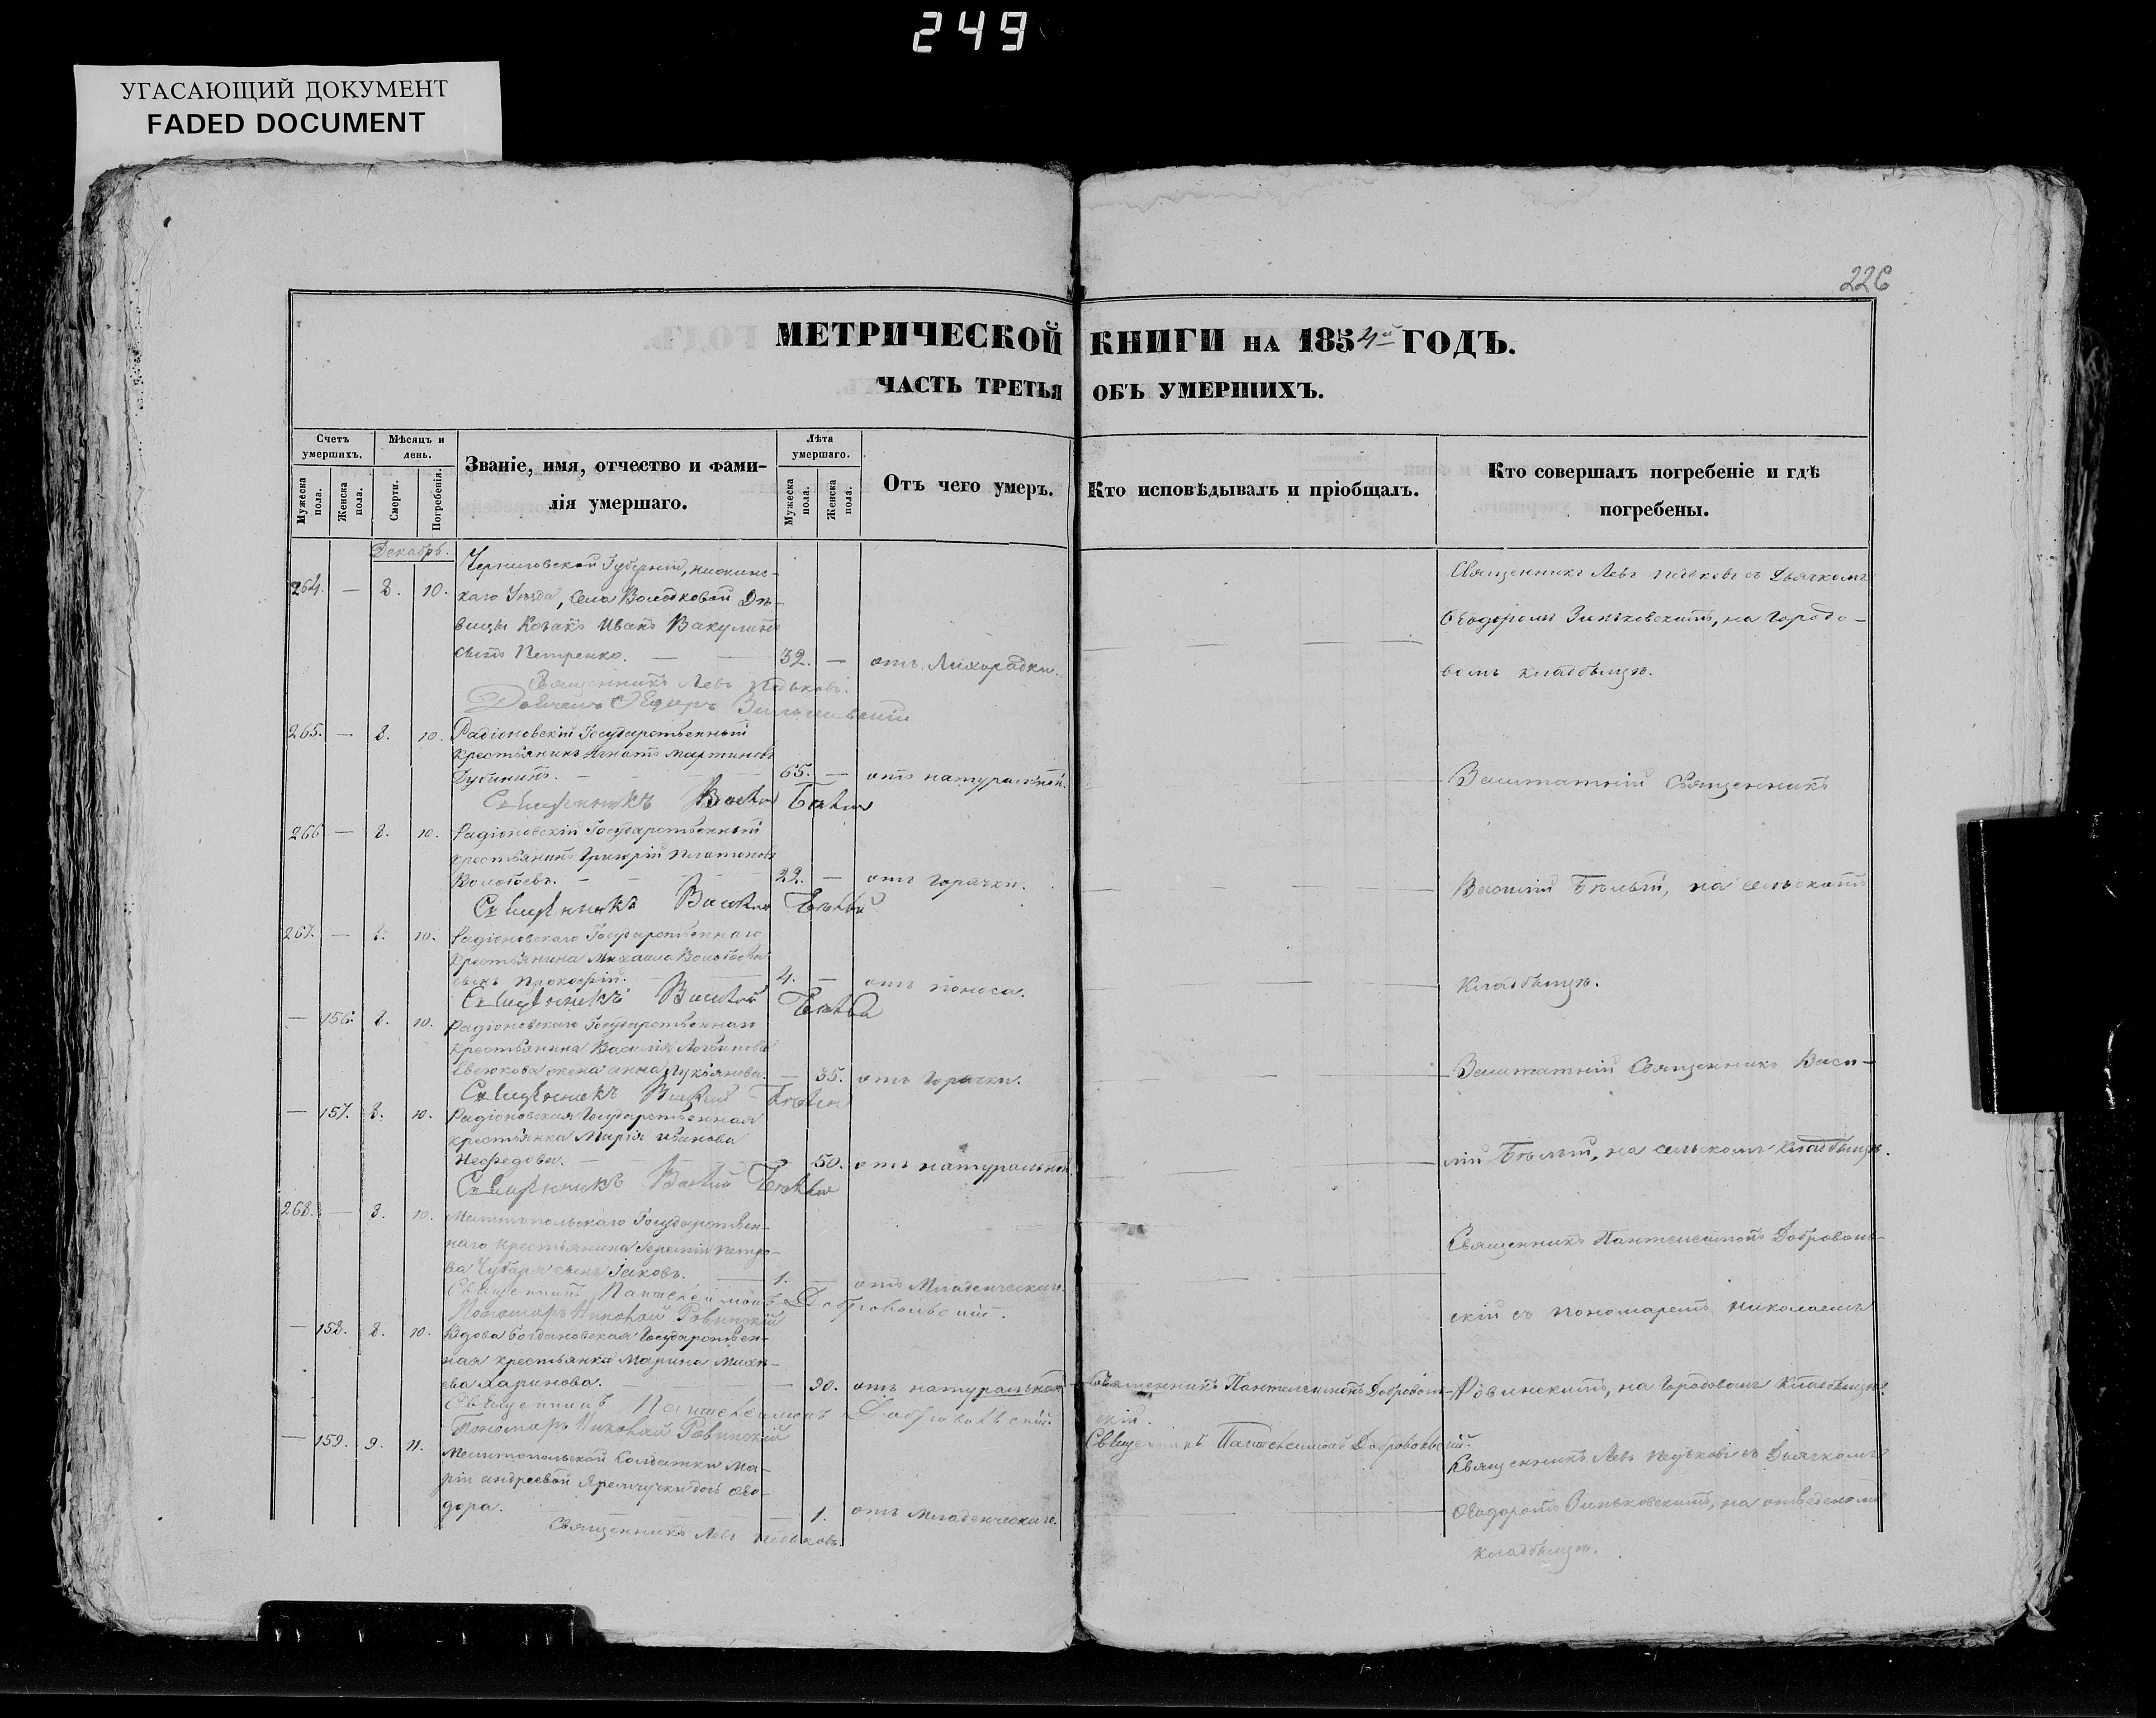 249
УГАСАЮЩИЙ ДОКУМЕНТ
FADED DOCUMENT
226
МЕТРИЧЕСКОЙ КНИГИ НА 1854й ГОДЪ.
ЧАСТЬ ТРЕТЬЯ ОБЪ УМЕРШИХЪ.
Счетъ умершихъ.
Мѣсяцъ и день.
Званіе, имя, отчество и фами-
лія умершаго.
Лѣта умершаго.
Отъ чего умеръ.
Кто исповѣдывалъ и пріобщалъ.
Кто совершалъ погребеніе и гдѣ
погребены.
Мужеска пола.
Женска пола.
Смерти.
Погребенія.
Мужеска пола.
Женска пола.
Декабрь.
Черниговской Губерніи,
264. — 8. 10. каго Уѣзда, Села Володковой Дѣ-
вицы Козакъ Иванъ Вакулинъ
сынъ Петренко. — 32. — отъ Лихорадки.
Священникъ Левъ
Священникъ Левъ съ Дьячкомъ
Ѳеодоромъ Зиньковскимъ, на Городо-
вомъ кладбищѣ.
265. — 8. 10. Радіоновскій Государственный
крестьянинъ Игнатъ Мартиновъ
65. — отъ натуральной.
Священникъ Василій Бѣлый
Заштатній Священникъ
266 — 8. 10. Радіоновскій Государственный
крестьянинъ Григорій Платоновъ
22. — отъ горячки.
Священникъ Василій Бѣлый
Василій Бѣлый, на сельскомъ
267. — 8. 10. Радіоновскаго Государственнаго
крестьянина Михаила
сынъ Прокофій. 4. — отъ поноса.
Священникъ Василій Бѣлый
кладбищѣ.
— 156. 8. 10. Радіоновскаго Государственнаго
крестьянина Василія Логвинова
жена Анна Лукьянова. — 35. отъ горячки.
Священникъ Василій Бѣлый
Заштатній Священникъ Васи-
— 157. 8. 10. Радіоновская Государственная
крестьянка Марія Иванова
Нефедова. — 50. отъ натуральной.
Священникъ Василій Бѣлый
лій Бѣлый, на сельскомъ кладбищѣ.
268. — 8. 10. Мелитопольскаго Государствен-
наго крестьянина Петро-
ва сынъ Іаковъ. — 1. — отъ Младенческаго.
Священникъ Пантелеимонъ Добровольскій.
Пономарь Николай Ровинскій
Священникъ Пантелеимонъ Доброволь-
скій съ пономаремъ Николаемъ
— 158. 8. 10. Вдова Богдановская Государствен-
ная крестьянка Марина Михѣ-
ева Харинова. — 90. отъ натуральной
Священникъ Пантелеимонъ Доброволь-
скій.
Ровинскимъ, на Городовомъ кладбищѣ.
Священникъ Пантелеимонъ Добровольскій
Пономарь Николай Ровинскій
Священникъ Пантелеимонъ Добровольскій.
— 159. 9. 11. Мелитопольской Солдатки Ма-
ріи Андреевой дочь Ѳео-
дора. — 1. отъ Младенческаго.
Священникъ Левъ
Священникъ Левъ съ Дьячкомъ
Ѳеодоромъ Зиньковскимъ, на отведеномъ
кладбищѣ.